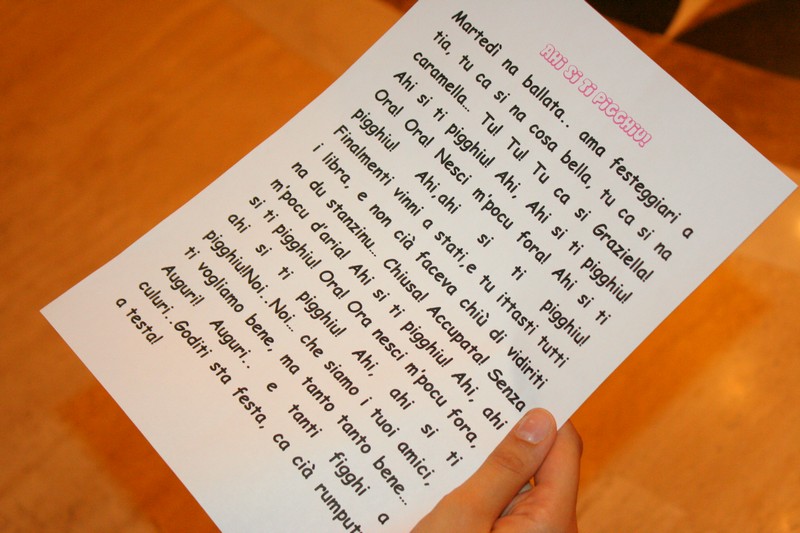 AHi Si Ti PiGGHiU!
Martedì na ballata.. ama festeggiari a
tia, tu ca si na cosa bella, tu ca si na
caramella... Tu! Tu! Tu ca si Graziella!
Ahi si ti pigghiu! Ahi, Ahi si ti pigghiu!
Ora! Ora! Nesci m'pocu fora! Ahi si ti
pigghiu! Ahi ahi si ti pigghiu!
Finalmenti vinni a stati,e tu ittasti tutti
i libra, e non cià faceva chiù di vidiriti
na du stanzinu... Chiusa! Accupata! Senza
m'pocu d'aria! Ahi si ti pigghiu! Ahi, ahi
si ti pigghiu! Ora! Ora nesci m'pocu fora,
ahi si ti pigghiu! Ahi, ahi si ti
pigghiu!Noi..Noi... che siamo i tuoi amici,
ti vogliamo bene, ma tanto tanto bene...
Auguri! Auguri.. e tanti figghi a
culuri.. Goditi sta festa, ca cià
a testa!